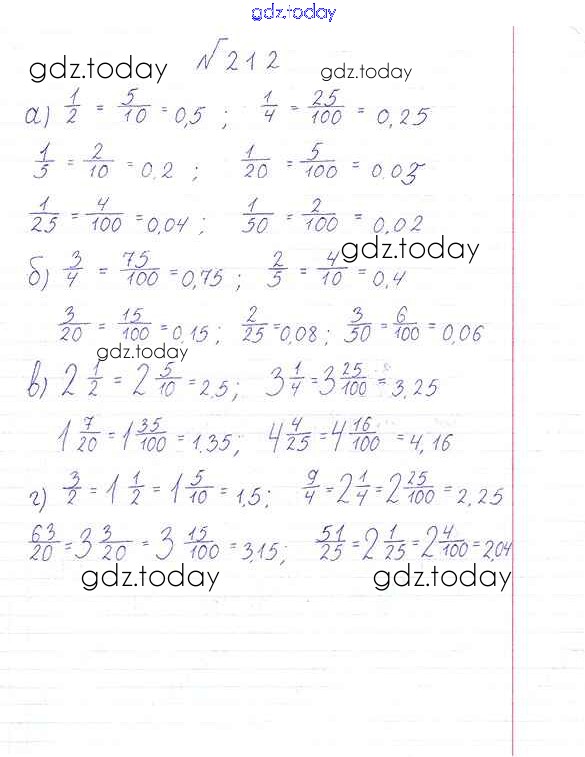 gdz.today
gdz.today № 212 gdz.today
а) 1/2 = 5/10 = 0,5 ; 1/4 = 25/100 = 0,25
1/5 = 2/10 = 0,2 ; 1/20 = 5/100 = 0.05
1/25 = 4/100 = 0,04 ; 1/50 = 2/100 = 0,02
gdz.today
б) 3/4 = 75/100 = 0,75 ; 2/5 = 4/10 = 0,4
3/20 = 15/100 = 0,15 ; 2/25 = 0,08 ; 3/50 = 6/100 = 0,06
gdz.today
в) 2 1/2 = 2 5/10 = 2,5 ; 3 1/4 = 3 25/100 = 3,25
1 7/20 = 1 35/100 = 1,35 ; 4 4/25 = 4 16/100 = 4,16
г) 3/2 = 1 1/2 = 1 5/10 = 1,5 ; 9/4 = 2 1/4 = 2 25/100 = 2,25
63/20 = 3 3/20 = 3 15/100 = 3,15 ; 51/25 = 2 1/25 = 2 4/100 = 2,04
gdz.today gdz.today